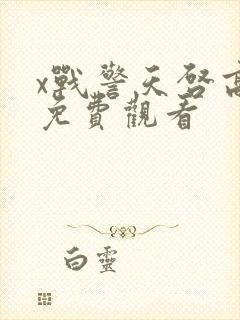 x戰警天啓高
免費觀看
白靈